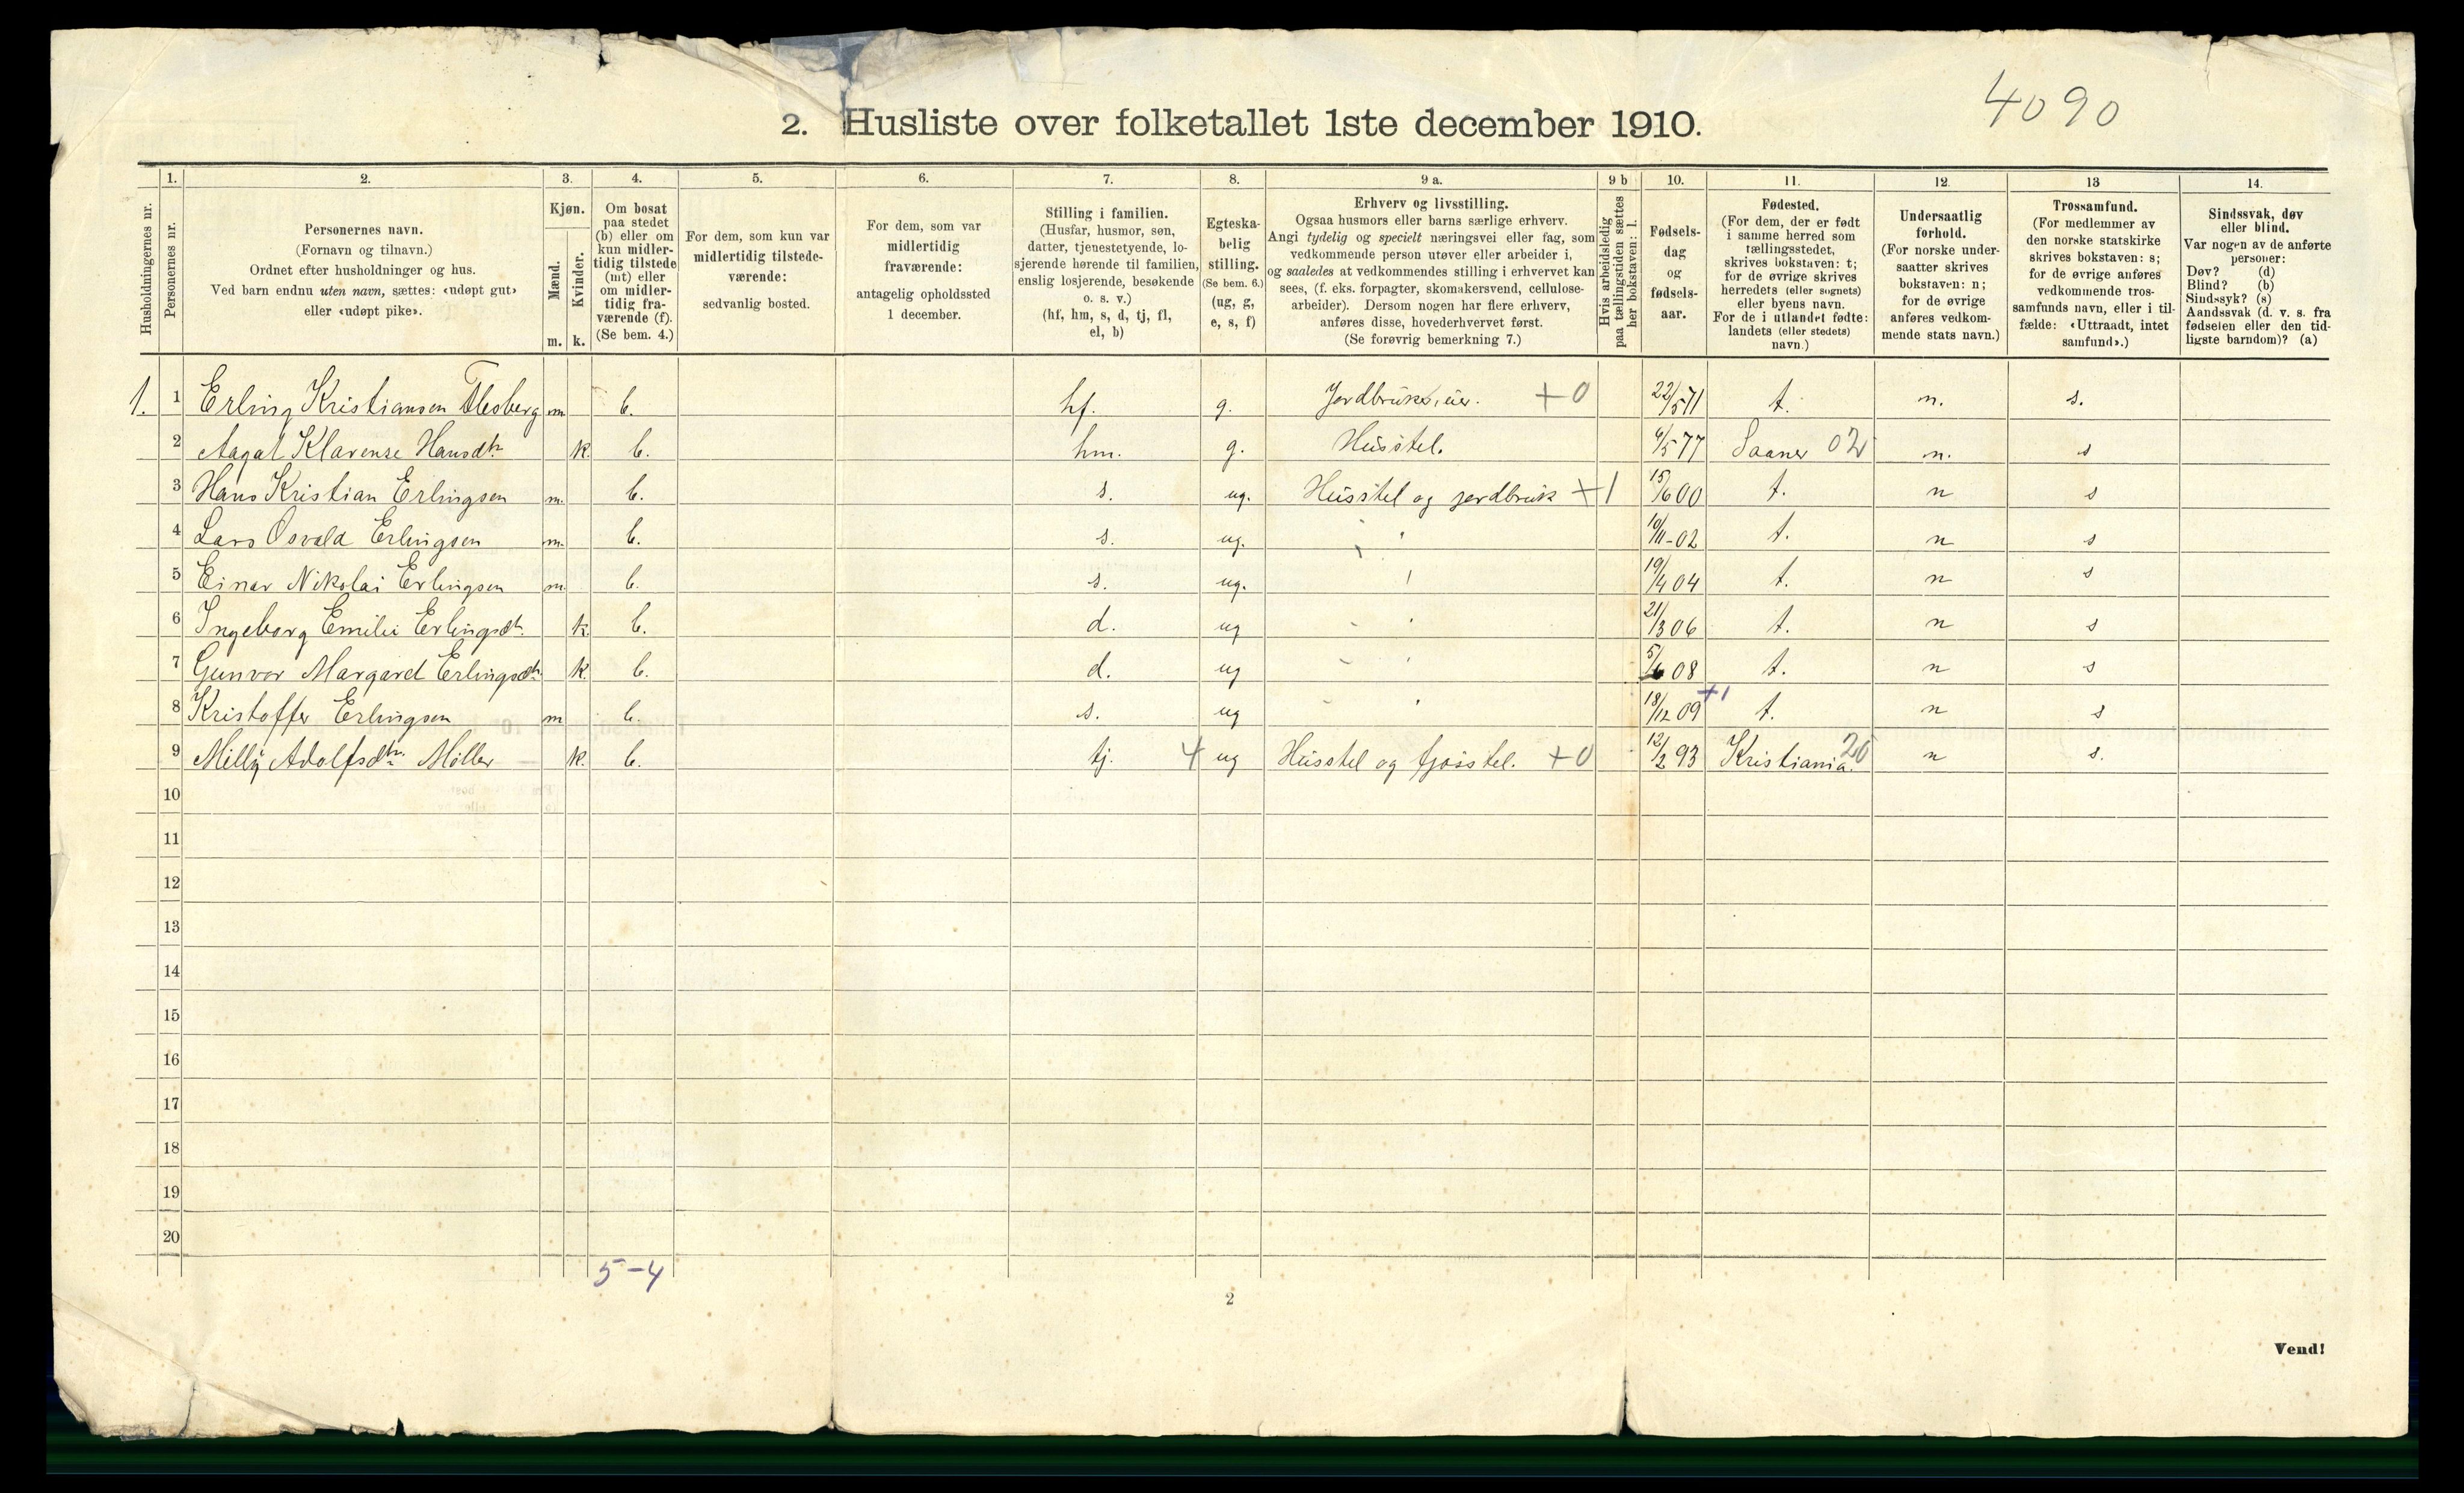 4090
2. Husliste over folketallet 1ste december 1910.
Husholdningernes nr.
1. Personernes nr.
2. Personernes navn. (Fornavn og tilnavn.) Ordnet efter husholdninger og hus. Ved barn endnu uten navn, sættes: «udøpt gut» eller «udøpt pike».
3. Kjøn. Mænd. m. Kvinder. k.
4. Om bosat paa stedet (b) eller om kun midlertidig tilstede (mt) eller om midlertidig fraværende (f). (Se bem. 4.)
5. For dem, som kun var midlertidig tilstedeværende: sedvanlig bosted.
6. For dem, som var midlertidig fraværende: antagelig opholdssted 1 december.
7. Stilling i familien. (Husfar, husmor, søn, datter, tjenestetyende, losjerende hørende til familien, enslig losjerende, besøkende o. s. v.) (hf, hm, s, d, tj, fl, el, b)
8. Egteskabelig stilling. (Se bem. 6.) (ug, g, e, s, f)
9 a. Erhverv og livsstilling. Ogsaa husmors eller barns særlige erhverv. Angi tydelig og specielt næringsvei eller fag, som vedkommende person utøver eller arbeider i, og saaledes at vedkommendes stilling i erhvervet kan sees, (f. eks. forpagter, skomakersvend, cellulosearbeider). Dersom nogen har flere erhverv, anføres disse, hovederhvervet først. (Se forøvrig bemerkning 7.)
9 b Hvis arbeidsledig paa tællingstiden sættes her bokstaven: l.
10. Fødselsdag og fødselsaar.
11. Fødested. (For dem, der er født i samme herred som tællingsstedet, skrives bokstaven: t; for de øvrige skrives herredets (eller sognets) eller byens navn. For de i utlandet fødte: landets (eller stedets) navn.)
12. Undersaatlig forhold. (For norske undersaatter skrives bokstaven: n; for de øvrige anføres vedkommende stats navn.)
13 Trossamfund. (For medlemmer av den norske statskirke skrives bokstaven: s; for de øvrige anføres vedkommende trossamfunds navn, eller i tilfælde: «Uttraadt, intet samfund».)
14. Sindssvak, døv eller blind. Var nogen av de anførte personer: Døv? (d) Blind? (b) Sindssyk? (s) Aandssvak (d. v. s. fra fødselen eller den tidligste barndom)? (a)
1. 1 Erling Kristiansen Flesberg m b. hf. g. Jordbruker, eier. +0 22/5 71 t. n. s.
2 Aagat Klarense Hansdtr k. b. hm. g. Husstel. 6/5 77 Saaner 02 n. s
3 Hans Kristian Erlingsen m. b. s. ug. Husstel og jordbruk +1 15/6 00 t. n s
4 Lars Osvald Erlingsen m. b. s. ug. " " 10/11-02 t. n s
5 Einar Nikolai Erlingsen m. b. s. ug. " 19/4 04 t. n s
6 Ingeborg Emilie Erlingsdt. k. b. d. ug " " 21/3 06 t. n s
7 Gunvor Margaret Erlingsdtr k. b. d. ug " " 5/6 08 t. n s
8 Kristoffer Erlingsen m b. s. ug " " 18/12 09 +1 t. n s
9 Milly Adolfsdtr. Møller k. b. tj. 4 ug Husstel og fjøsstel. +0 12/2 93 Kristiania. 20 n s.
10
11
12
13
14
15
16
17
18
19
20
5-4
2
Vend!